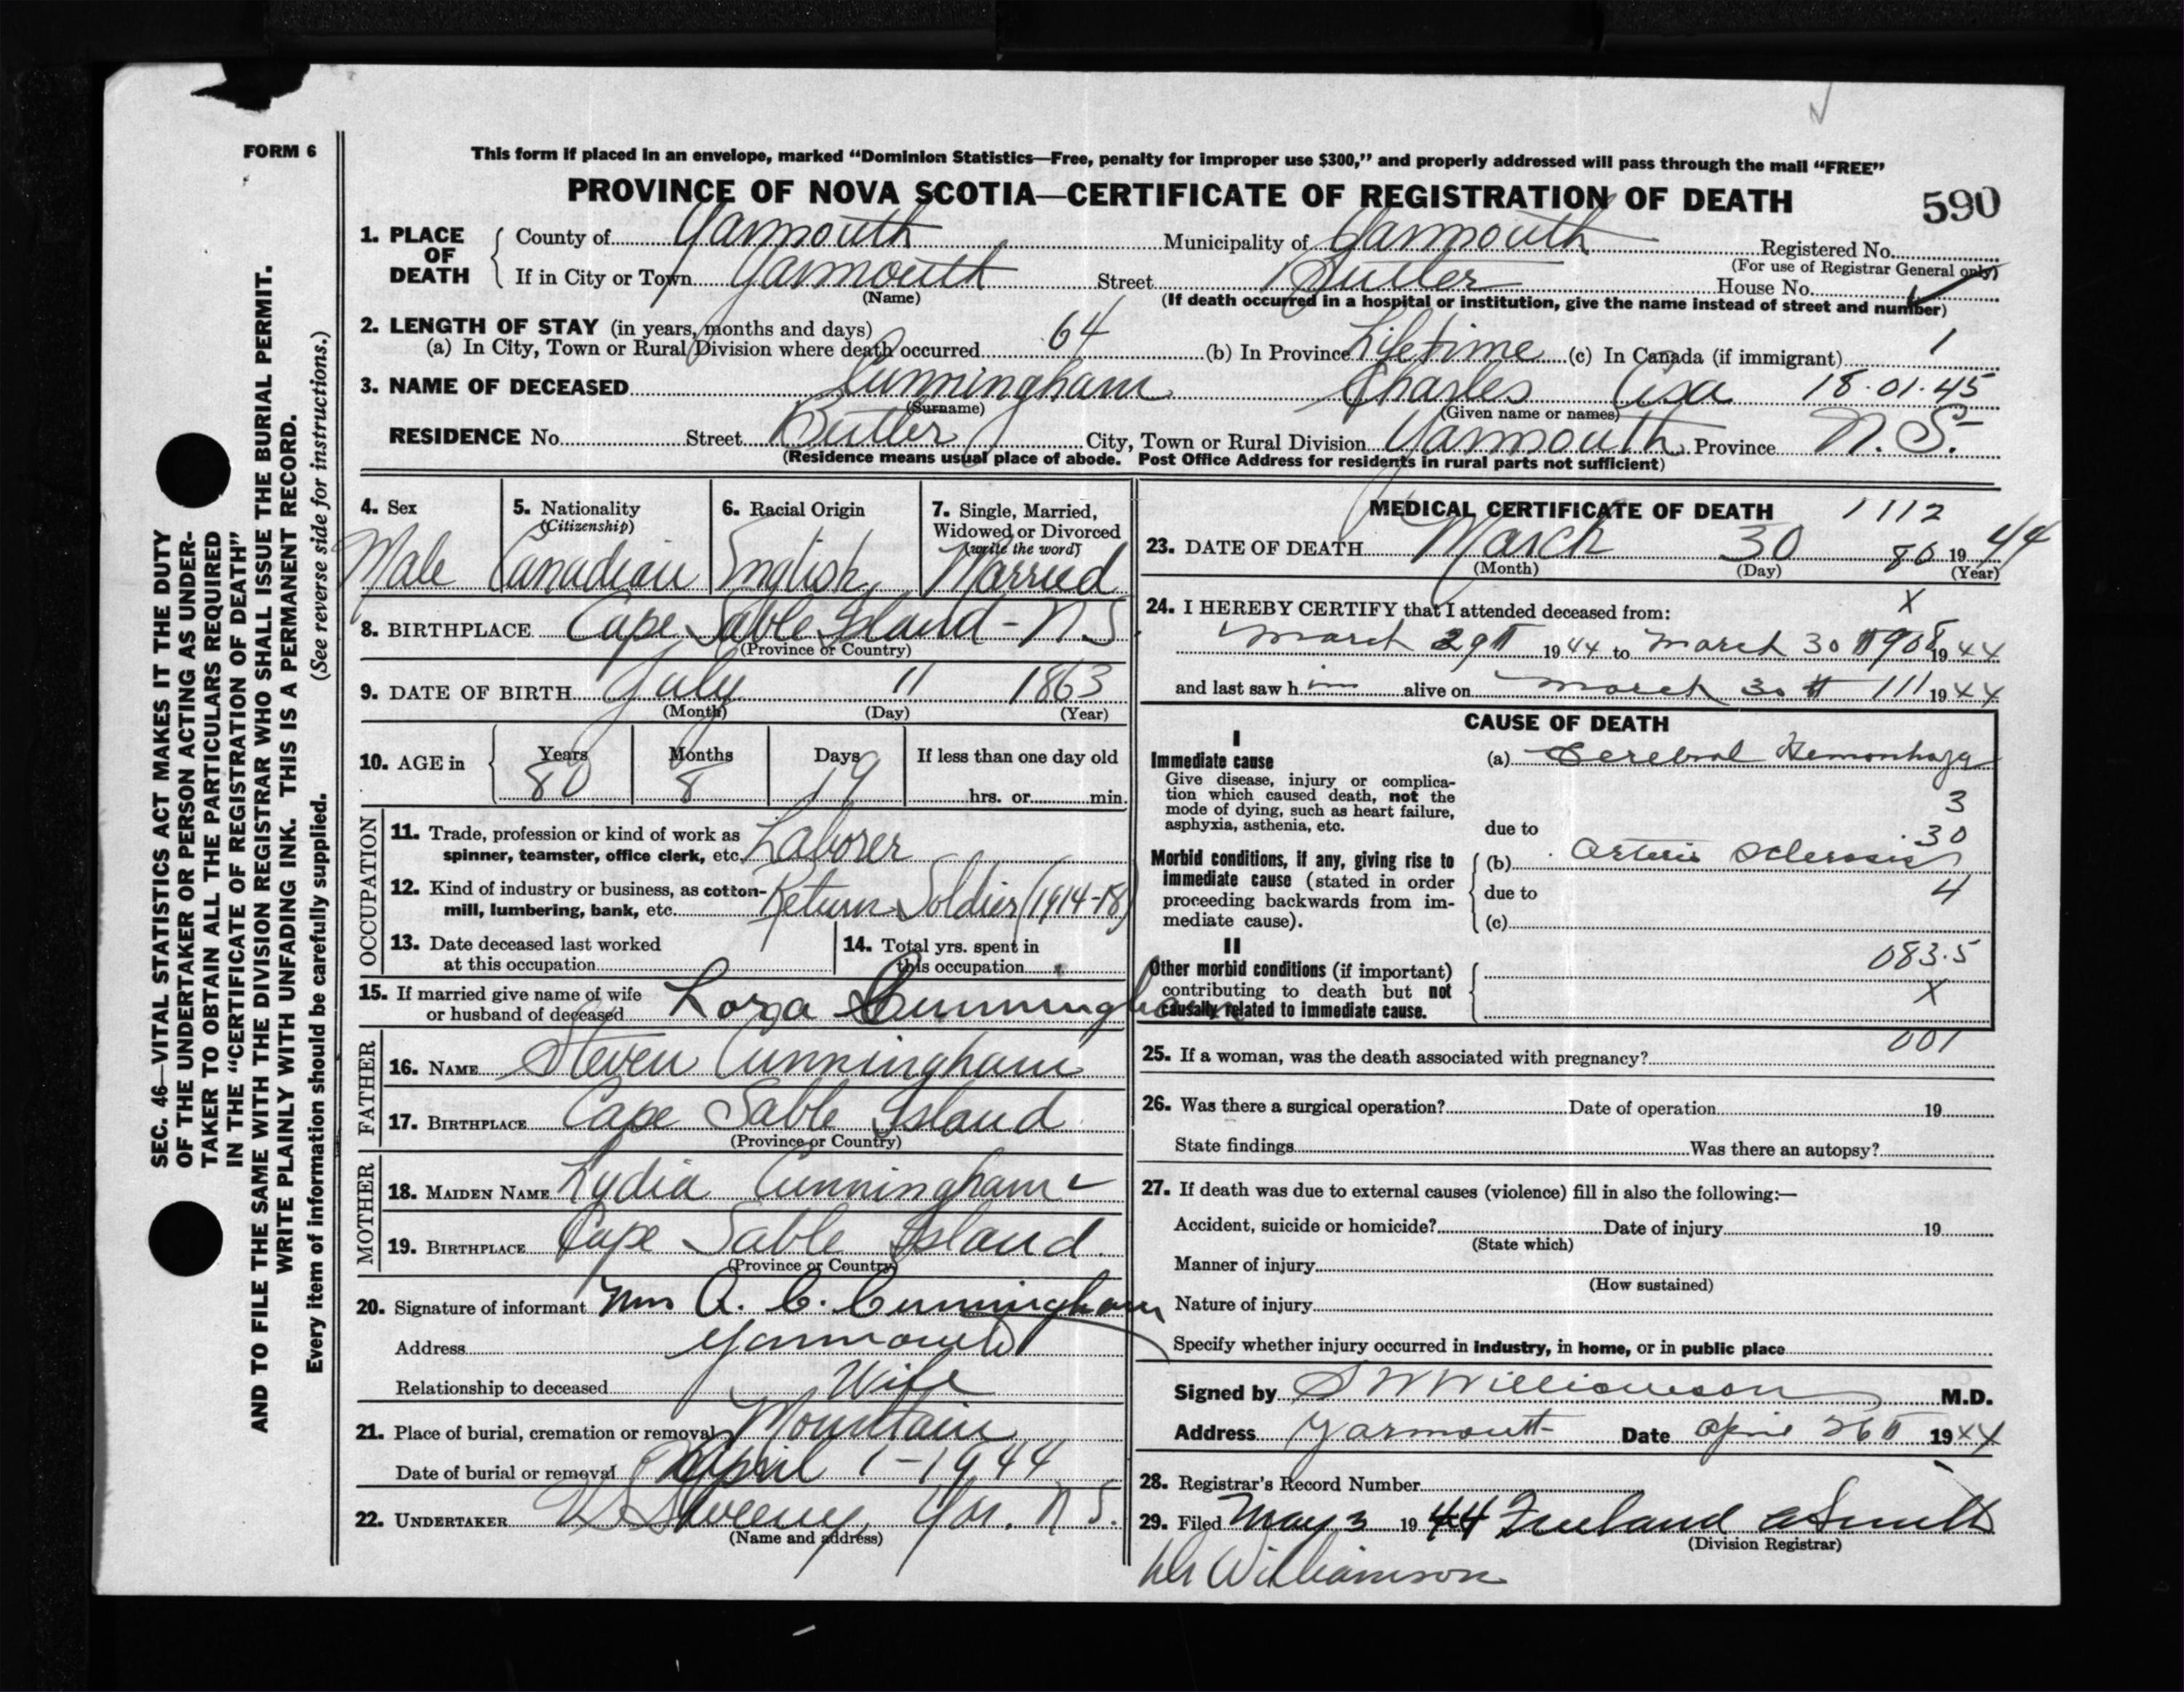 FORM 6
This form if placed in an envelope, marked “Dominion Statistics—Free, penalty for improper use $300,” and properly addressed will pass through the mail “FREE”
PROVINCE OF NOVA SCOTIA—CERTIFICATE OF REGISTRATION OF DEATH
590
1. PLACE OF DEATH County of Yarmouth Municipality of Yarmouth Registered No.
(For use of Registrar General only)
If in City or Town Yarmouth Street Butler House No.
(Name) (If death occurred in a hospital or institution, give the name instead of street and number)
2. LENGTH OF STAY (in years, months and days)
(a) In City, Town or Rural Division where death occurred 64 (b) In Province Lifetime (c) In Canada (if immigrant) 1
3. NAME OF DECEASED Cunningham Charles Asa 18.01.45
(Surname) (Given name or names)
RESIDENCE No. Street Butler City, Town or Rural Division Yarmouth Province N.S.
(Residence means usual place of abode. Post Office Address for residents in rural parts not sufficient)
4. Sex Male
5. Nationality (Citizenship) Canadian
6. Racial Origin English
7. Single, Married, Widowed or Divorced (write the word) Married
8. BIRTHPLACE Cape Sable Island - N S
(Province or Country)
9. DATE OF BIRTH July 11 1863
(Month) (Day) (Year)
10. AGE in Years 80 Months 8 Days 19 If less than one day old
hrs. or min.
OCCUPATION
11. Trade, profession or kind of work as spinner, teamster, office clerk, etc. Laborer
12. Kind of industry or business, as cotton-mill, lumbering, bank, etc. Return Soldier (1914-18)
13. Date deceased last worked at this occupation
14. Total yrs. spent in this occupation
15. If married give name of wife or husband of deceased Lora Cunningham
FATHER
16. NAME Steven Cunningham
17. BIRTHPLACE Cape Sable Island
(Province or Country)
MOTHER
18. MAIDEN NAME Lydia Cunningham
19. BIRTHPLACE Cape Sable Island
(Province or Country)
20. Signature of informant Mrs A. C. Cunningham
Address Yarmouth
Relationship to deceased Wife
21. Place of burial, cremation or removal Mountain
Date of burial or removal April 1 - 1944
22. UNDERTAKER Sweeny Yar. N S.
(Name and address)
MEDICAL CERTIFICATE OF DEATH 1112
23. DATE OF DEATH March 30 80 1944
(Month) (Day) (Year)
24. I HEREBY CERTIFY that I attended deceased from: X
March 29th 1944 to March 30th 908 1944
and last saw him alive on March 30th 111 1944
CAUSE OF DEATH
I
Immediate cause
Give disease, injury or complication which caused death, not the mode of dying, such as heart failure, asphyxia, asthenia, etc.
(a) Cerebral Hemorrhage
3
due to 30
Morbid conditions, if any, giving rise to immediate cause (stated in order proceeding backwards from immediate cause).
(b) Arterio Sclerosis
due to 4
(c)
II
083.5
Other morbid conditions (if important) contributing to death but not causally related to immediate cause.
X
001
25. If a woman, was the death associated with pregnancy?
26. Was there a surgical operation? Date of operation 19
State findings Was there an autopsy?
27. If death was due to external causes (violence) fill in also the following:—
Accident, suicide or homicide? Date of injury 19
(State which)
Manner of injury
(How sustained)
Nature of injury
Specify whether injury occurred in industry, in home, or in public place
Signed by S W Williamson M.D.
Address Yarmouth Date April 26th 1944
28. Registrar's Record Number
29. Filed May 3 1944 Freeland A Smith
(Division Registrar)
Dr Williamson
SEC. 46—VITAL STATISTICS ACT MAKES IT THE DUTY
OF THE UNDERTAKER OR PERSON ACTING AS UNDER-
TAKER TO OBTAIN ALL THE PARTICULARS REQUIRED
IN THE “CERTIFICATE OF REGISTRATION OF DEATH”
AND TO FILE THE SAME WITH THE DIVISION REGISTRAR WHO SHALL ISSUE THE BURIAL PERMIT.
WRITE PLAINLY WITH UNFADING INK. THIS IS A PERMANENT RECORD.
Every item of information should be carefully supplied. (See reverse side for instructions.)